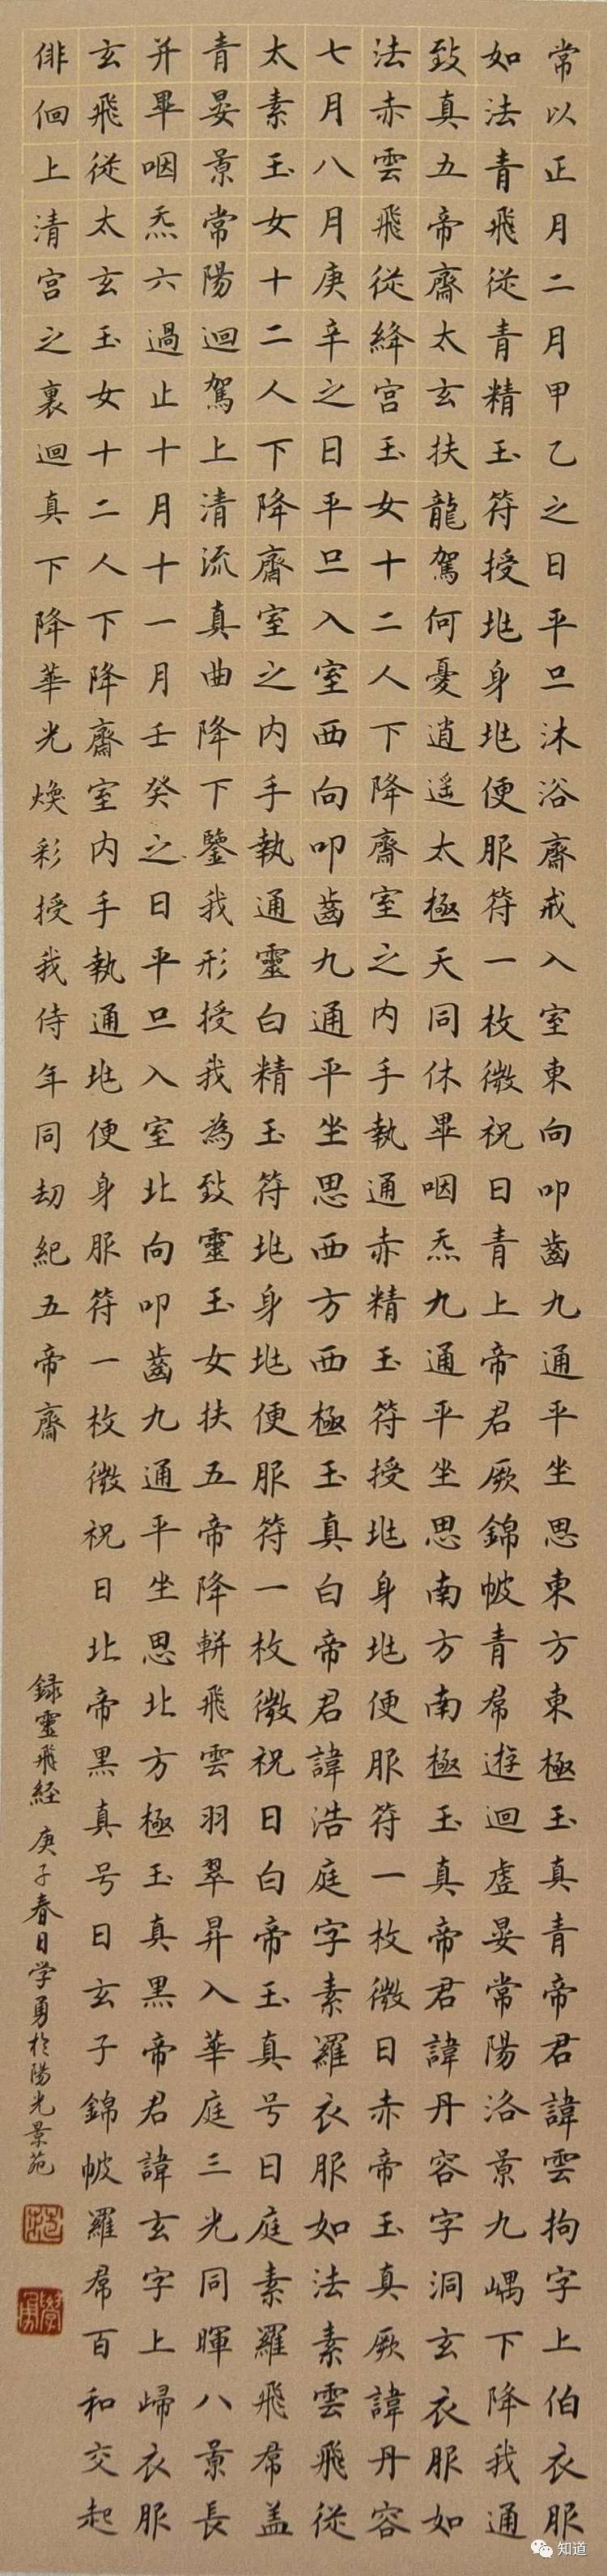 常以正月二月甲乙之日平旦沐浴齋戒入室東向叩齒九通平坐思東方東極玉真青帝君諱雲拘字上伯衣服
如法青飛從青精玉符授兆身兆便服符一枚微祝曰青上帝君厥錦帔青帬遊迴虛晏常陽洛景九嵎下降我通
致真五帝齋太玄扶龍駕何憂逍遥太極天同休畢咽炁九通平坐思南方南極玉真帝君諱丹容字洞玄衣服如
法赤雲飛從絳宮玉女十二人下降齋室之内手執通赤精玉符授兆身兆便服符一枚微曰赤帝玉真厥諱丹容
七月八月庚辛之日平旦入室西向叩齒九通平坐思西方西極玉真白帝君諱浩庭字素羅衣服如法素雲飛從
太素玉女十二人下降齋室之内手執通靈白精玉符兆身兆便服符一枚微祝曰白帝玉真号曰庭素羅飛帬盖
青晏景常陽迴駕上清流真曲降下鑒我形授我為致靈玉女扶五帝降軿飛雲羽翠昇入華庭三光同暉八景長
并畢咽炁六過止十月十一月壬癸之日平旦入室北向叩齒九通平坐思北方極玉真黑帝君諱玄字上歸衣服
玄飛從太玄玉女十二人下降齋室内手執通兆便身服符一枚微祝曰北帝黑真号曰玄子錦帔羅帬百和交起
俳佪上清宮之裏迴真下降華光煥彩授我侍年同劫紀五帝齋
録靈飛経 庚子春日学勇於陽光景苑
學勇
知道